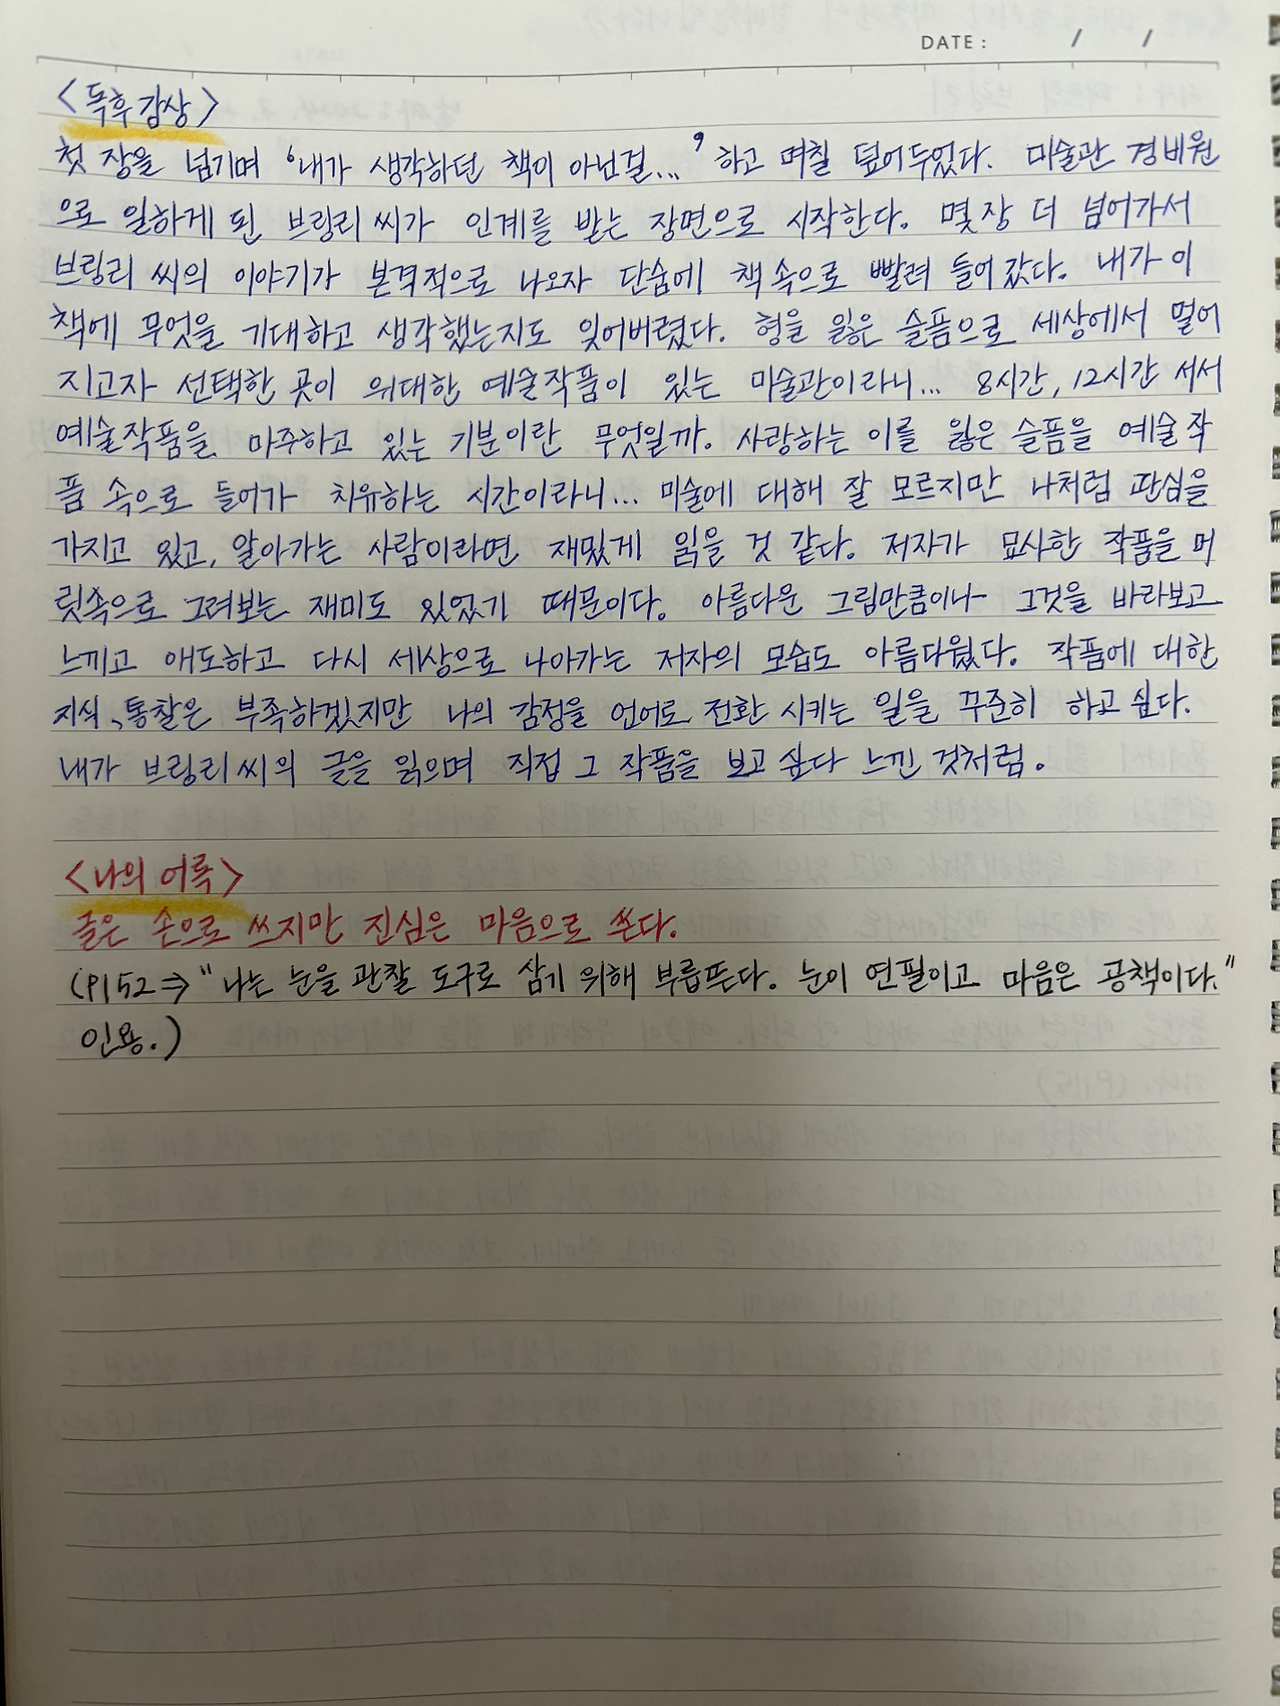 DATE :        /        /
<독후감상>
첫 장을 넘기며 '내가 생각하던 책이 아닌걸...' 하고 며칠 덮어두었다. 미술관 경비원
으로 일하게 된 브링리 씨가 인계를 받는 장면으로 시작한다. 몇 장 더 넘어가서
브링리 씨의 이야기가 본격적으로 나오자 단숨에 책 속으로 빨려 들어갔다. 내가 이
책에 무엇을 기대하고 생각했는지도 잊어버렸다. 형을 잃은 슬픔으로 세상에서 멀어
지고자 선택한 곳이 위대한 예술작품이 있는 미술관이라니... 8시간, 12시간 서서
예술작품을 마주하고 있는 기분이란 무엇일까. 사랑하는 이를 잃은 슬픔을 예술작
품 속으로 들어가 치유하는 시간이라니... 미술에 대해 잘 모르지만 나처럼 관심을
가지고 있고, 알아가는 사람이라면 재밌게 읽을 것 같다. 저자가 묘사한 작품을 머
릿속으로 그려보는 재미도 있었기 때문이다. 아름다운 그림만큼이나 그것을 바라보고
느끼고 애도하고 다시 세상으로 나아가는 저자의 모습도 아름다웠다. 작품에 대한
지식, 통찰은 부족하겠지만 나의 감정을 언어로 전환 시키는 일을 꾸준히 하고 싶다.
내가 브링리 씨의 글을 읽으며 직접 그 작품을 보고 싶다 느낀 것처럼.
<나의 어록>
글은 손으로 쓰지만 진심은 마음으로 쓴다.
(P152⇒"나는 눈을 관찰 도구로 삼기 위해 부릅뜬다. 눈이 연필이고 마음은 공책이다."
인용.)